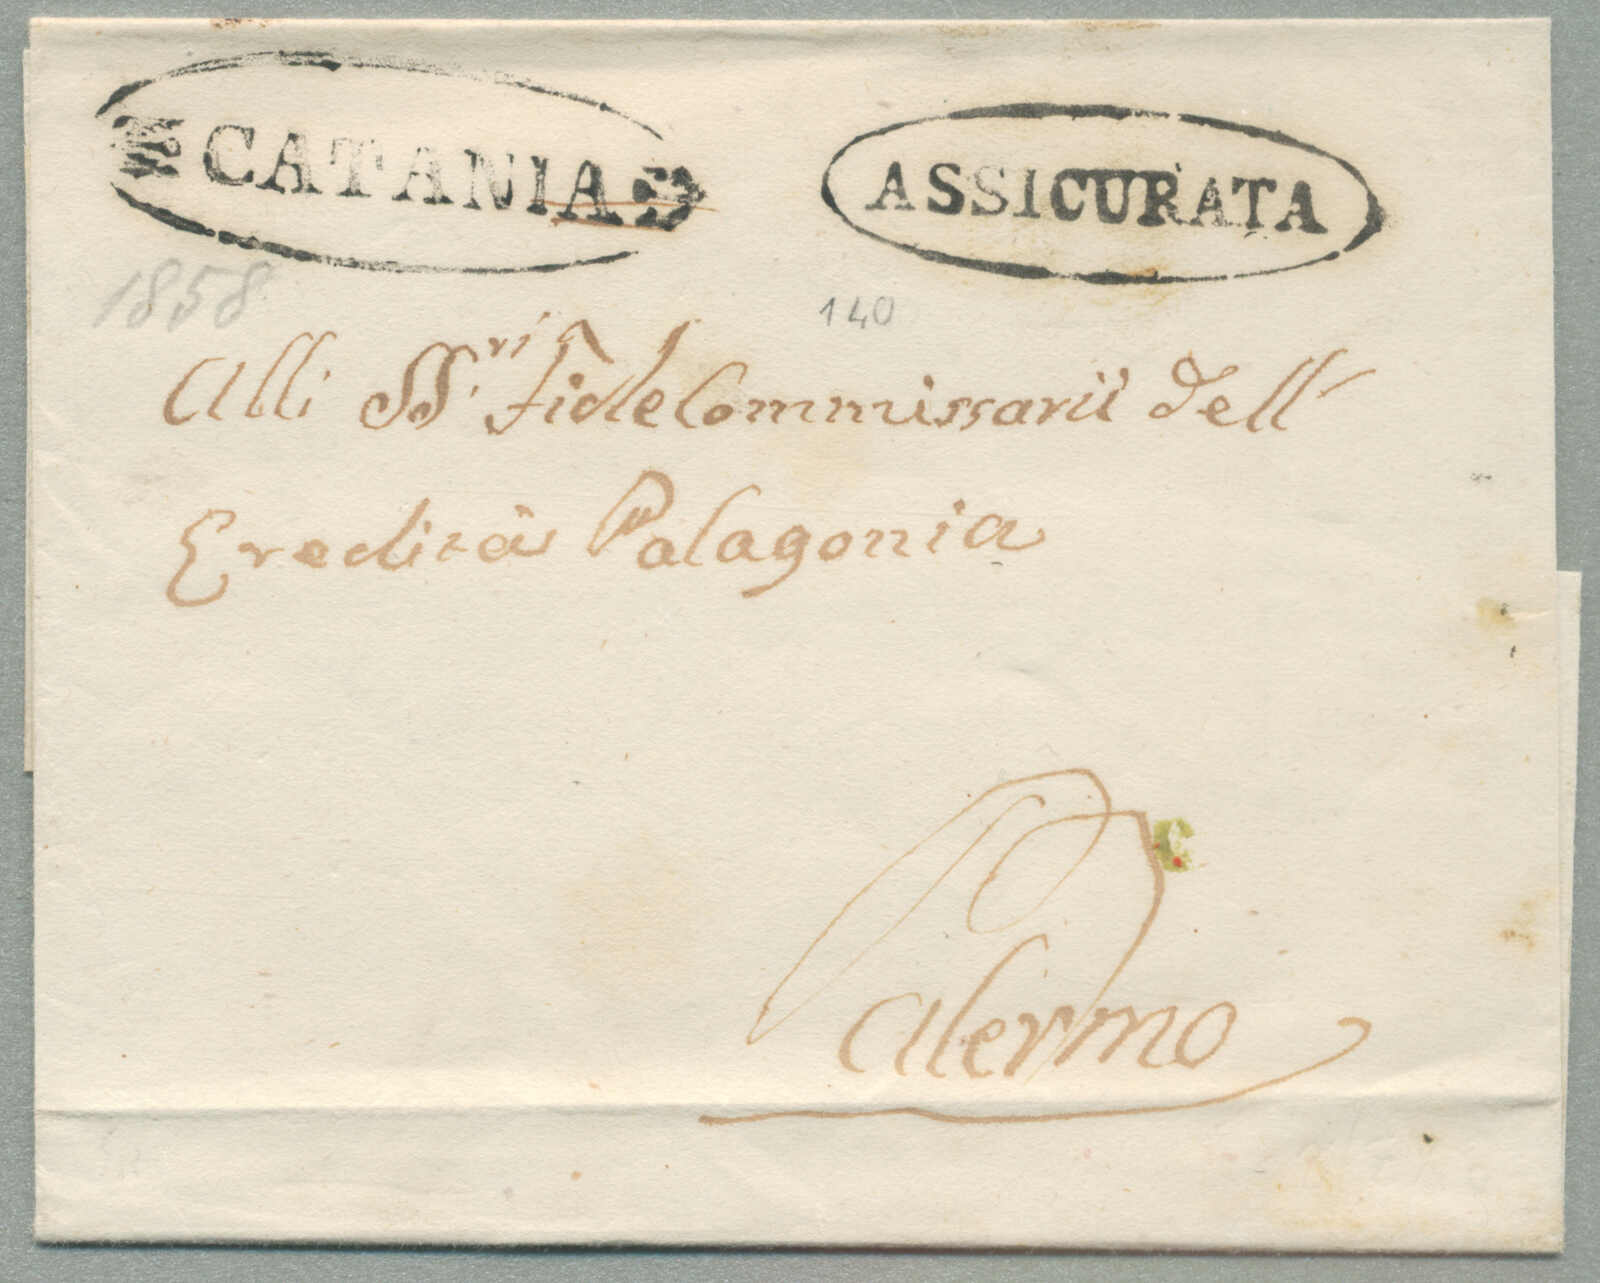 CATANIA
ASSICURATA
1858
140
Alli SS.ri FideCommissarii dell'
Eredità Palagonia
Palermo